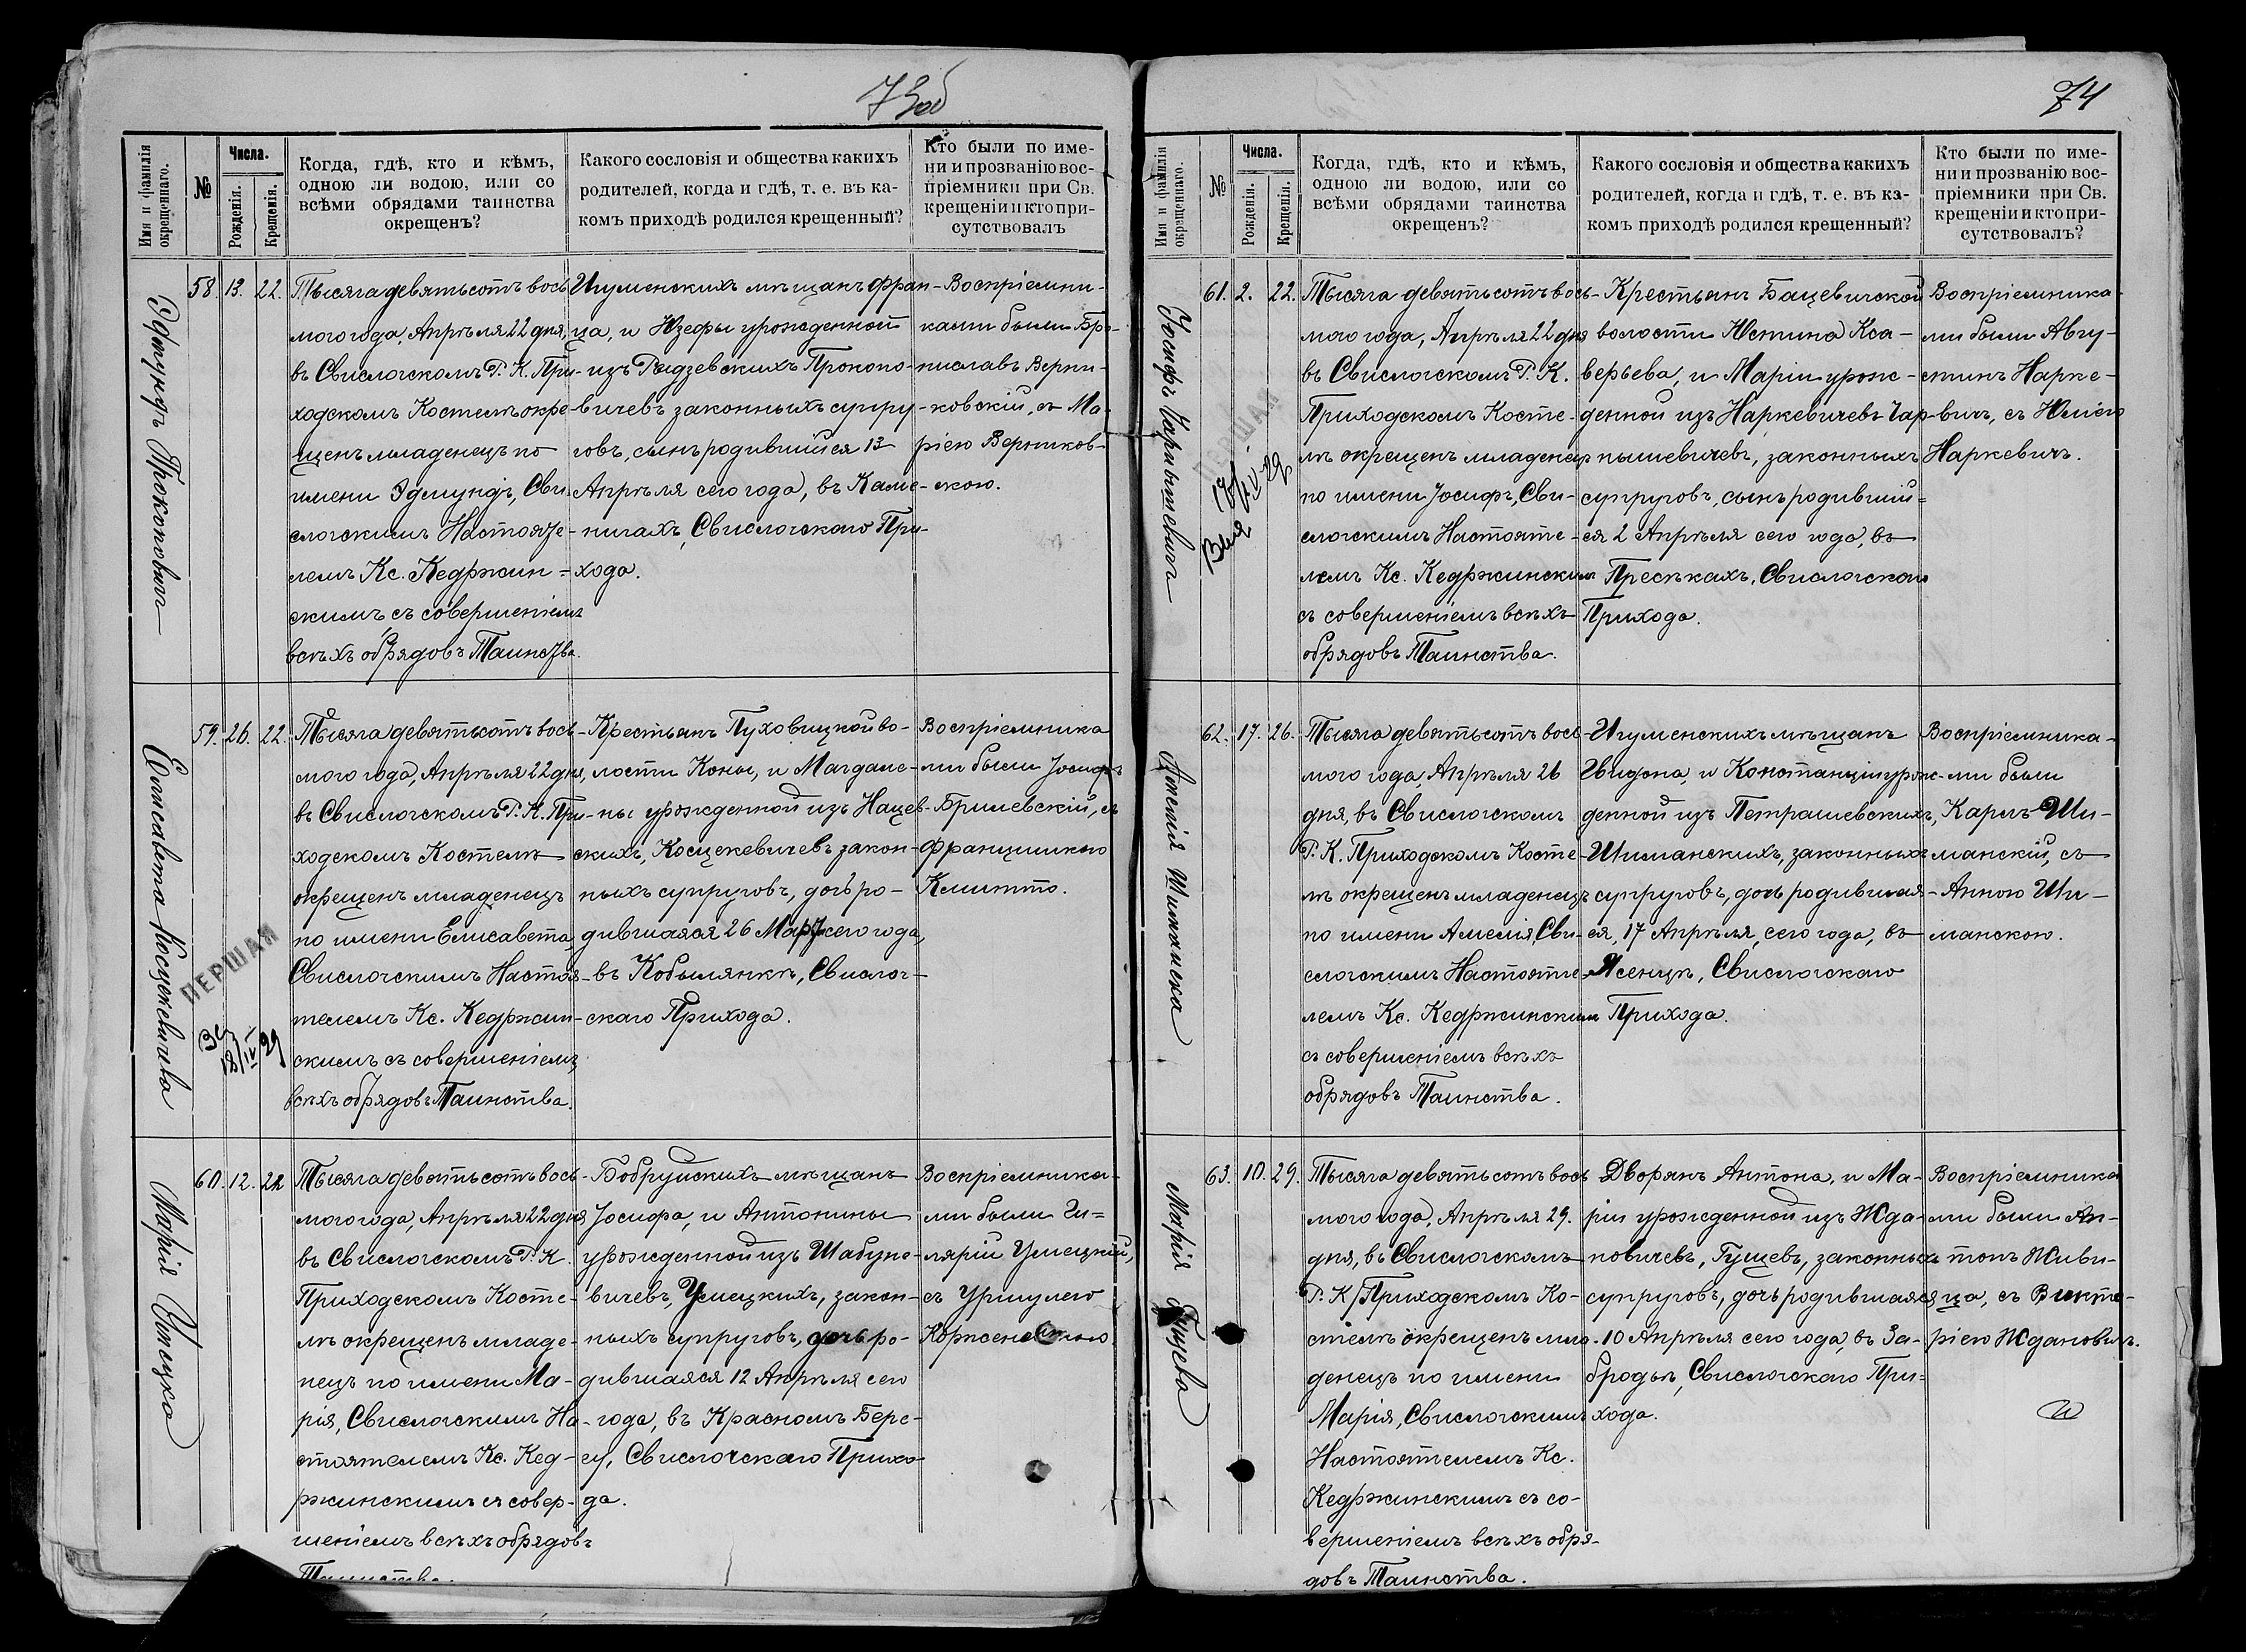 73об
Имя и фамилія
окрещеннаго.
№
Числа.
Рожденія.
Крещенія.
Когда, гдѣ, кто и кѣмъ,
одною ли водою, или со
всѣми обрядами таинства
окрещенъ?
Какого сословія и общества какихъ
родителей, когда и гдѣ, т. е. въ ка-
комъ приходѣ родился крещенный?
Кто были по име-
ни и прозванію вос-
пріемники при Св.
крещеніи и кто при-
сутствовалъ
Эдмундъ Прокоповичъ
58. 13. 22.
Тысяча девятьсотъ вось
мого года, Апрѣля 22 дня,
въ Свислочскомъ Р. К. При-
ходскомъ Костелѣ окре-
щенъ младенецъ по
имени Эдмундъ, Сви-
слочскимъ Настояте-
лемъ Кс. Кедржин-
скимъ съ совершеніемъ
всѣхъ обрядовъ Таинства.
Игуменскихъ мѣщанъ Фран-
ца, и Юзефы урожденной
изъ Радзевскихъ Прокопо-
вичевъ законныхъ супру-
говъ, сынъ родившійся 13
Апрѣля сего года, въ Каме-
ничахъ, Свислочскаго При-
хода.
Воспріемни-
ками были Бро-
ниславъ Верни-
ковскій, съ Ма-
ріею Верников-
скою.
Елисавета Косцекевичева
59. 26. 22.
ПЕРШАЯ
18/IV 29
Тысяча девятьсотъ вось-
мого года, Апрѣля 22 дня,
въ Свислочскомъ Р. К. При-
ходскомъ Костелѣ
окрещенъ младенецъ
по имени Елисавета,
Свислочскимъ Настоя-
телемъ Кс. Кедржин-
скимъ съ совершеніемъ
всѣхъ обрядовъ Таинства.
Крестьянъ Пуховицкой во-
лости Коны, и Магдале-
ны урожденной изъ Нацев-
скихъ, Косцекевичевъ закон-
ныхъ супруговъ, дочь ро-
дившаяся 26 Марта сего года,
въ Кобылянкѣ, Свислоч-
скаго Прихода.
Воспріемника
ми были Іосифъ
Бришевскій, съ
Францишкою
Климто.
Марія Умецка
60. 12. 22
Тысяча девятьсотъ вось-
мого года, Апрѣля 22 дня
въ Свислочскомъ Р. К.
Приходскомъ Косте-
лѣ окрещенъ младе-
нецъ по имени Ма-
рія, Свислочскимъ На-
стоятелемъ Кс. Кед-
ржинскимъ съ совер-
шеніемъ всѣхъ обрядовъ
Таинства.
Бобруйскихъ мѣщанъ
Іосифа, и Антонины
урожденной изъ Шабуне-
вичевъ, Умецкихъ, закон-
ныхъ супруговъ, дочь ро-
дившаяся 12 Апрѣля сего
года, въ Красномъ Бере-
гу, Свислочскаго Прихо-
да.
Воспріемника-
ми были Ги-
лярій Умецкій,
съ Уршулею
74
Имя и фамилія
окрещеннаго.
№
Числа.
Рожденія.
Крещенія.
Когда, гдѣ, кто и кѣмъ,
одною ли водою, или со
всѣми обрядами таинства
окрещенъ?
Какого сословія и общества какихъ
родителей, когда и гдѣ, т. е. въ ка-
комъ приходѣ родился крещенный?
Кто были по име-
ни и прозванію вос-
пріемники при Св.
крещеніи и кто при-
сутствовалъ?
Іосифъ Чарнышевичъ
61. 2. 22.
ПЕРШАЯ
Тысяча девятьсотъ вось-
мого года, Апрѣля 22 дня
въ Свислочскомъ Р. К.
Приходскомъ Косте-
лѣ окрещенъ младенецъ
по имени Іосифъ, Сви-
слочскимъ Настояте-
лемъ Кс. Кедржинскимъ
съ совершеніемъ всѣхъ
обрядовъ Таинства.
Крестьянъ Бацевичской
волости Юстина Кса-
верьева, и Маріи урож-
денной изъ Наркевичевъ Чар-
нышевичевъ, законныхъ
супруговъ, сынъ родившій-
ся 2 Апрѣля сего года, въ
Пресѣкахъ, Свислочскаго
Прихода.
Воспріемника
ми были Авгу-
стинъ Нарке-
вичъ, съ Юліею
Наркевичъ.
Амелія Шиманска
62. 17. 26.
Тысяча девятьсотъ вось-
мого года, Апрѣля 26
дня, въ Свислочскомъ
Р. К. Приходскомъ Косте-
лѣ окрещенъ младенецъ
по имени Амелія, Сви-
слочскимъ Настояте-
лемъ Кс. Кедржинскимъ
съ совершеніемъ всѣхъ
обрядовъ Таинства.
Игуменскихъ мѣщанъ
Гвидона, и Констанціи урож-
денной изъ Петрашевскихъ,
Шиманскихъ, законныхъ
супруговъ, дочь родившая-
ся, 17 Апрѣля, сего года, въ
Ясенцѣ, Свислочскаго
Прихода.
Воспріемника-
ми были
Карлъ Ши-
манскій, съ
Анною Ши-
манскою.
Марія Гущева
63. 10. 29.
Тысяча девятьсотъ вось
мого года, Апрѣля 29.
дня, въ Свислочскомъ
Р. К. Приходскомъ Ко-
стелѣ окрещенъ мла-
денецъ по имени
Марія, Свислочскимъ
Настоятелемъ Кс.
Кедржинскимъ съ со-
вершеніемъ всѣхъ обря-
довъ Таинства.
Дворянъ Антона, и Ма-
ріи урожденной изъ Жда-
новичевъ, Гущевъ, законныхъ
супруговъ, дочь родившаяся
10 Апрѣля сего года, въ За-
бродьѣ, Свислочскаго При-
хода.
Воспріемника
ми были Ан-
тонъ Живи-
ца, съ Викто-
ріею Ждановичъ.